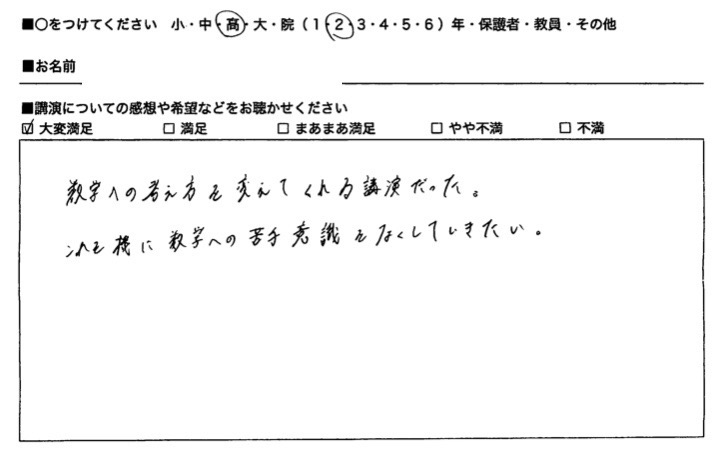 ■○をつけてください 小・中・高・大・院（1・2・3・4・5・6）年・保護者・教員・その他
■お名前
■講演についての感想や希望などをお聴かせください
☑ 大変満足 □ 満足 □ まあまあ満足 □ やや不満 □ 不満
数学への考え方を変えてくれる講演だった。
これを機に数学への苦手意識をなくしていきたい。